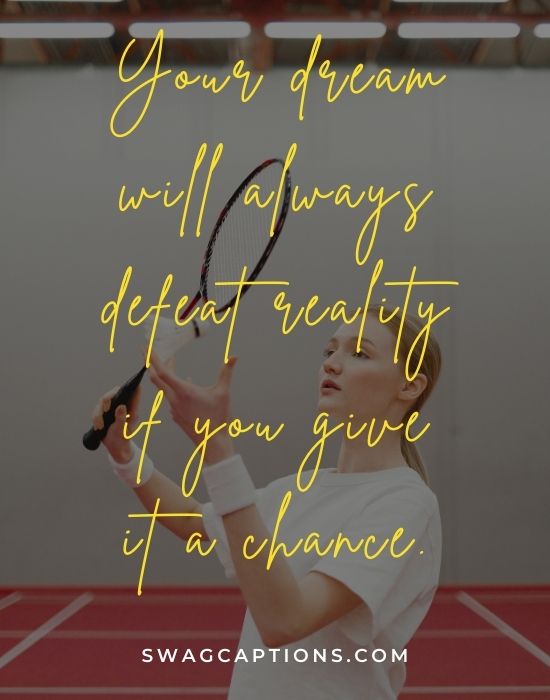 Your dream
will always
defeat reality
if you give
it a chance.
SWAGCAPTIONS.COM